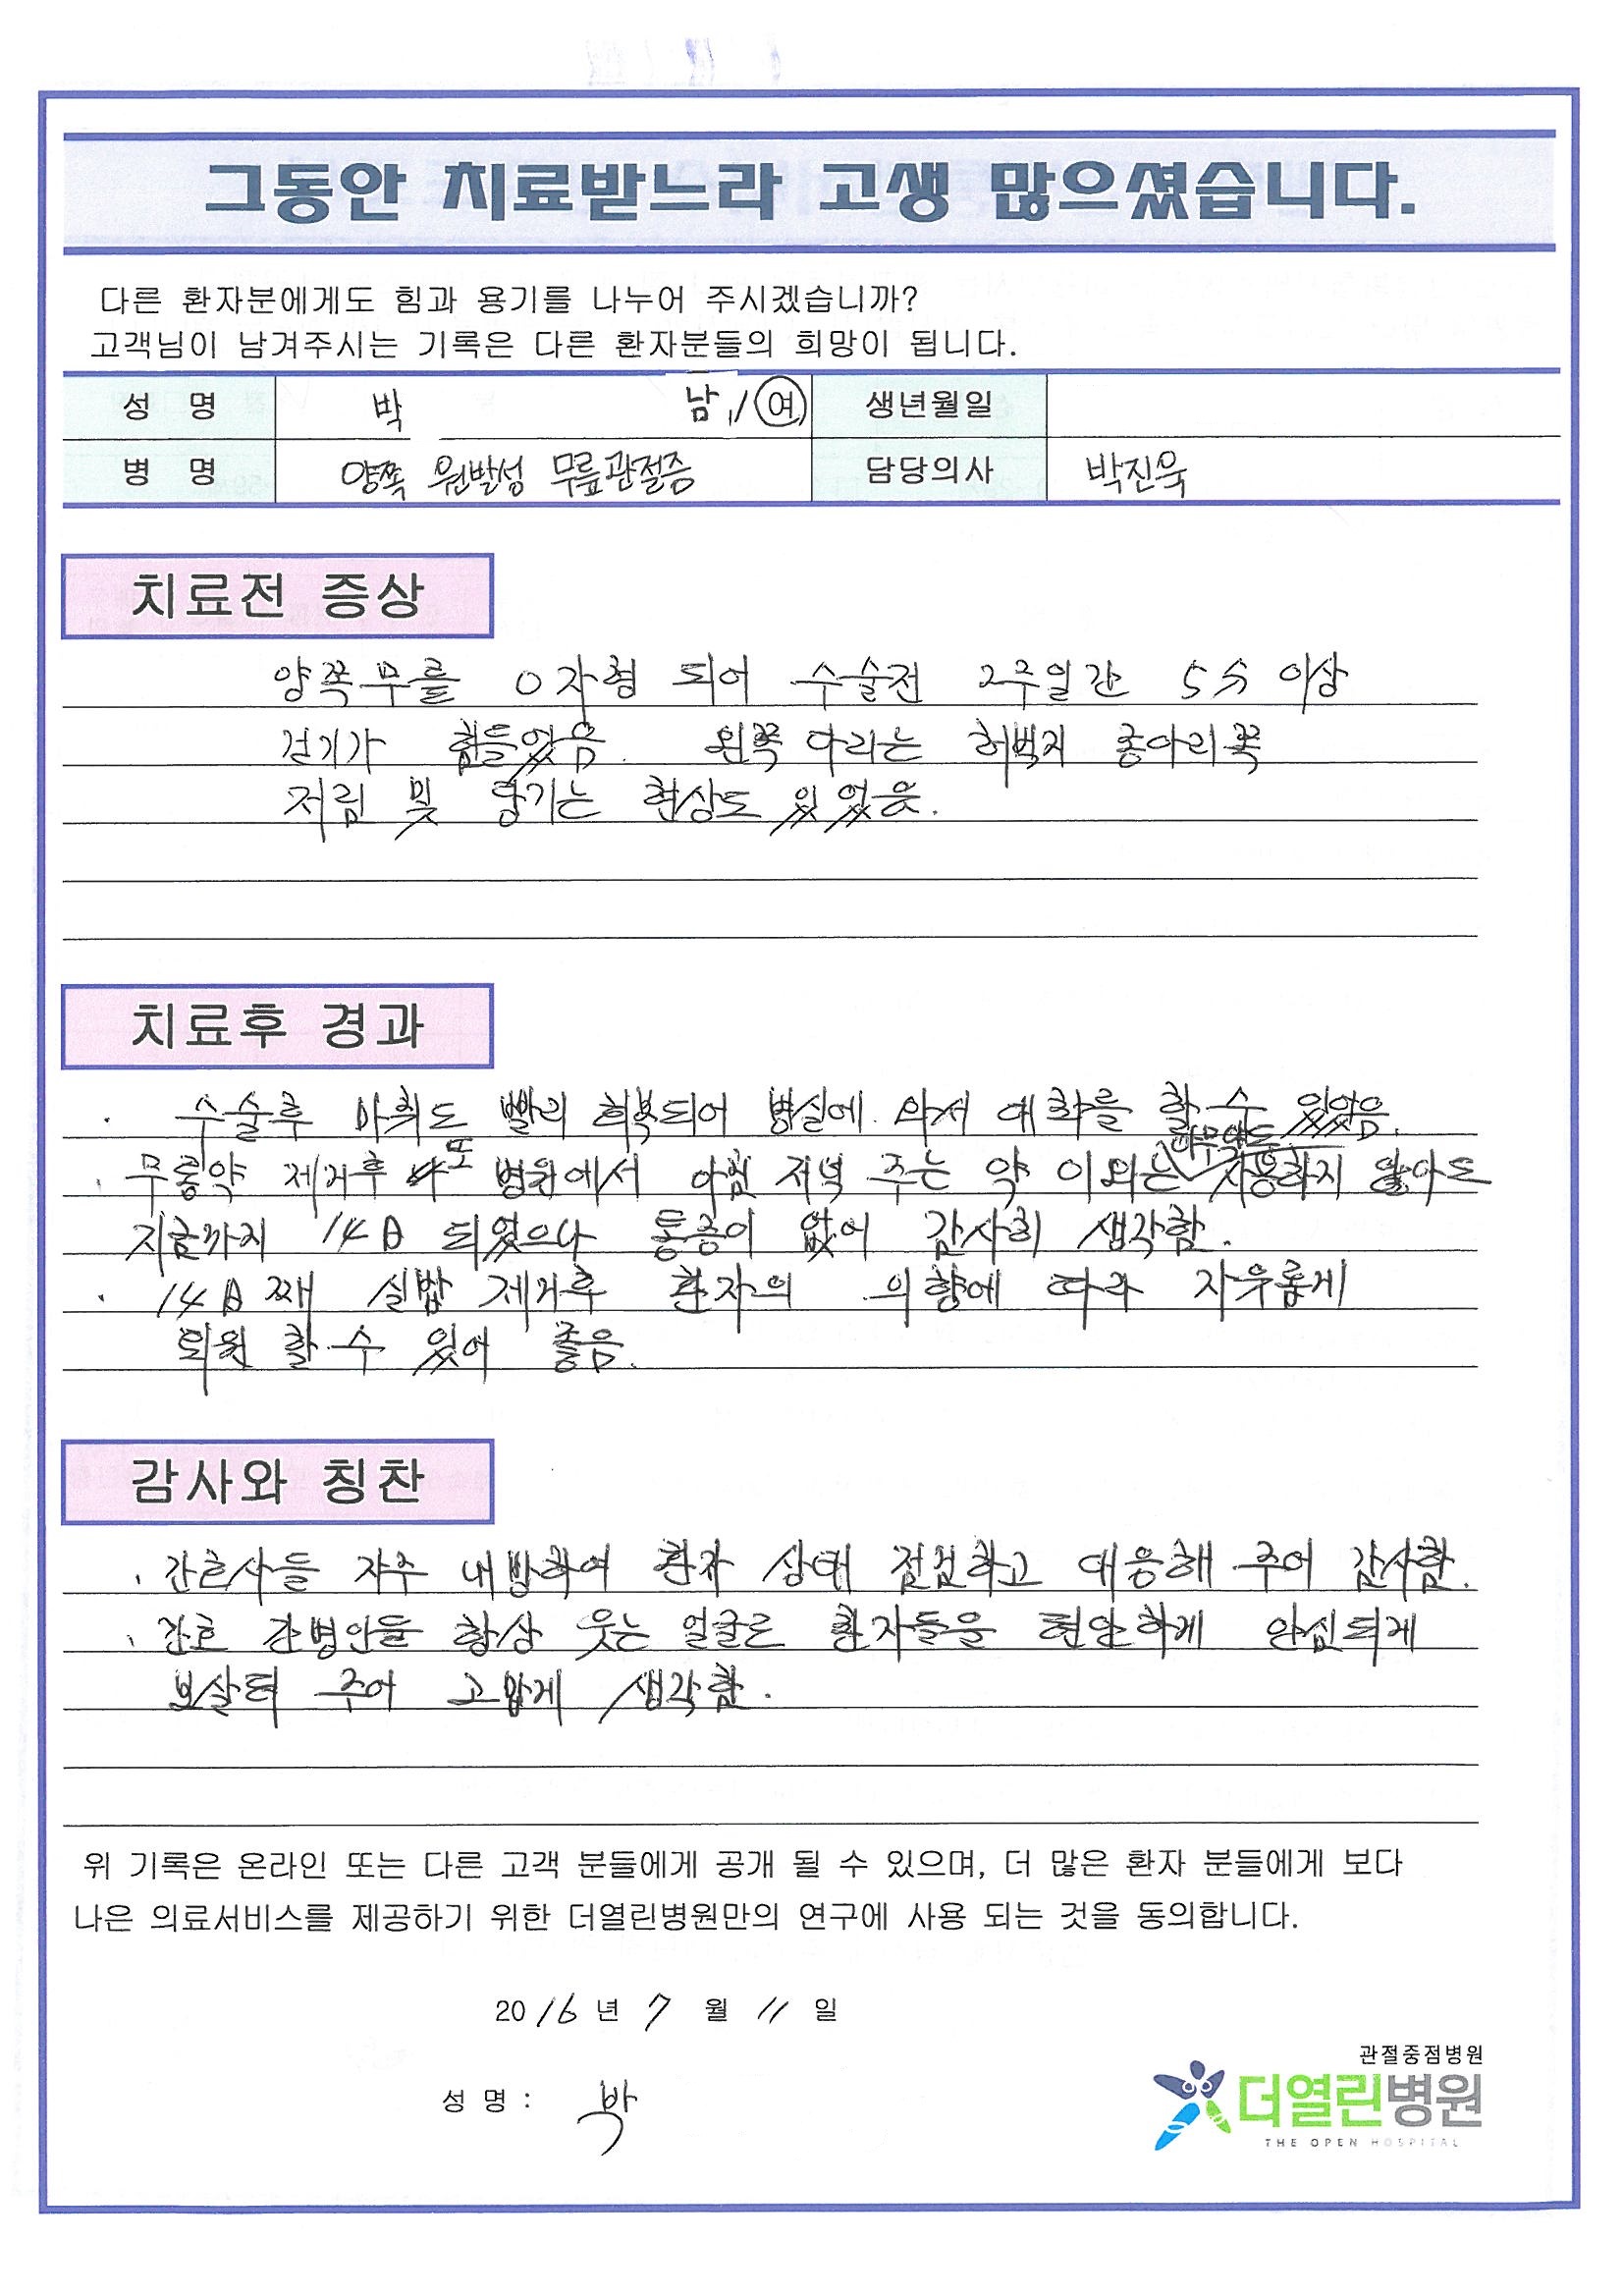 그동안 치료받느라 고생 많으셨습니다.
다른 환자분에게도 힘과 용기를 나누어 주시겠습니까?
고객님이 남겨주시는 기록은 다른 환자분들의 희망이 됩니다.
성 명 박 남 / 여 생년월일
병 명 양쪽 원발성 무릎관절증 담당의사 박진욱
치료전 증상
양쪽무릎 O자형 되어 수술전 2주일간 5分 이상
걷기가 힘들었음. 왼쪽 다리는 허벅지 종아리쪽
저림 및 당기는 현상도 있었음.
치료후 경과
· 수술후 마취도 빨리 회복되어 병실에 와서 대화를 할 수 있었음.
· 무통약 제거후 또 병원에서 아침 저녁 주는 약 이외는 아무약도 사용하지 않아도
지금까지 14日 되었으나 통증이 없어 감사히 생각함.
· 14日째 실밥 제거후 환자의 의향에 따라 자유롭게
퇴원 할 수 있어 좋음.
감사와 칭찬
· 간호사들 자주 내방하여 환자 상태 점검하고 대응해 주어 감사함.
· 간호 간병인들 항상 웃는 얼굴로 환자들을 편안하게 안심되게
보살펴 주어 고맙게 생각함.
위 기록은 온라인 또는 다른 고객 분들에게 공개 될 수 있으며, 더 많은 환자 분들에게 보다
나은 의료서비스를 제공하기 위한 더열린병원만의 연구에 사용 되는 것을 동의합니다.
2016년 7 월 11 일
성 명 : 박
관절중점병원
더열린병원
THE OPEN HOSPITAL